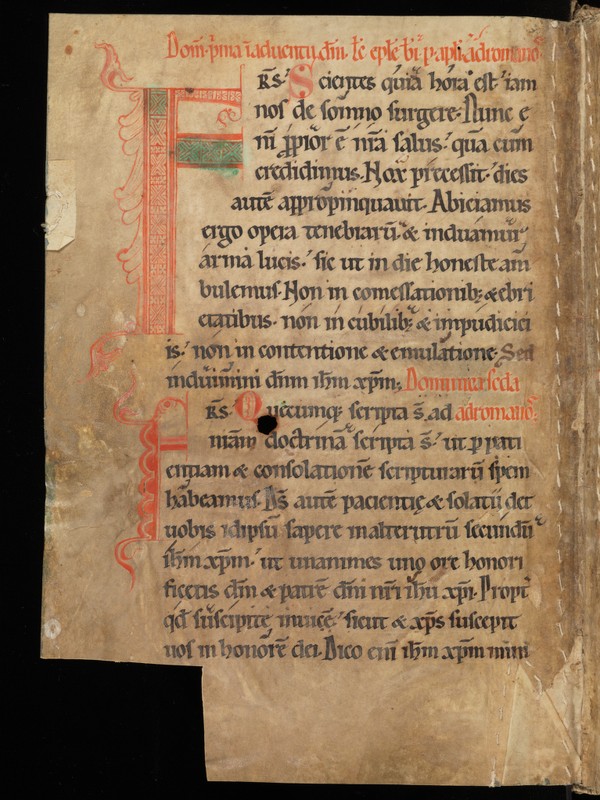 Dom̄· p̄ma ī aduentu dm̄. lc̄ ep̄le b̄i p· apl̄i ad romanos
FR̄S· Scientes quia hora est iam
nos de somno surgere· Nunc e
nī p̱pior ē nr̄a salus· quā cum
credidimus· Nox precessit· dies
autē appropinquauit· Abiciamus
ergo opera tenebrarū· & induamur
arma lucis· sic ut in die honeste am
bulemus· Non in comessationib; & ebri
etatibus· non in cubilib; & impudicici
is· non in contentione & emulatione· Sed
induimini dn̄m ih̄m xp̄m; Dominica scd̄a
FR̄S· Quecumq; scripta s̄ ad ad romanos
nr̄am doctrinā scripta s̄· ut p̱ pati
entiam & consolationē scripturarū spem
habeamus· Ds̄ autē pacientię & solatii det
uobis idipsū sapere in alterutrū secundū
ih̄m xp̄m· ut unanimes uno ore honori
ficetis dm̄ & patrē dm̄ nr̄i ih̄u xp̄i· Propt̄
qd̄ suscipite inuicē· sicut & xp̄s suscepit
uos in honorē dei· Dico enī ih̄m xp̄m mini